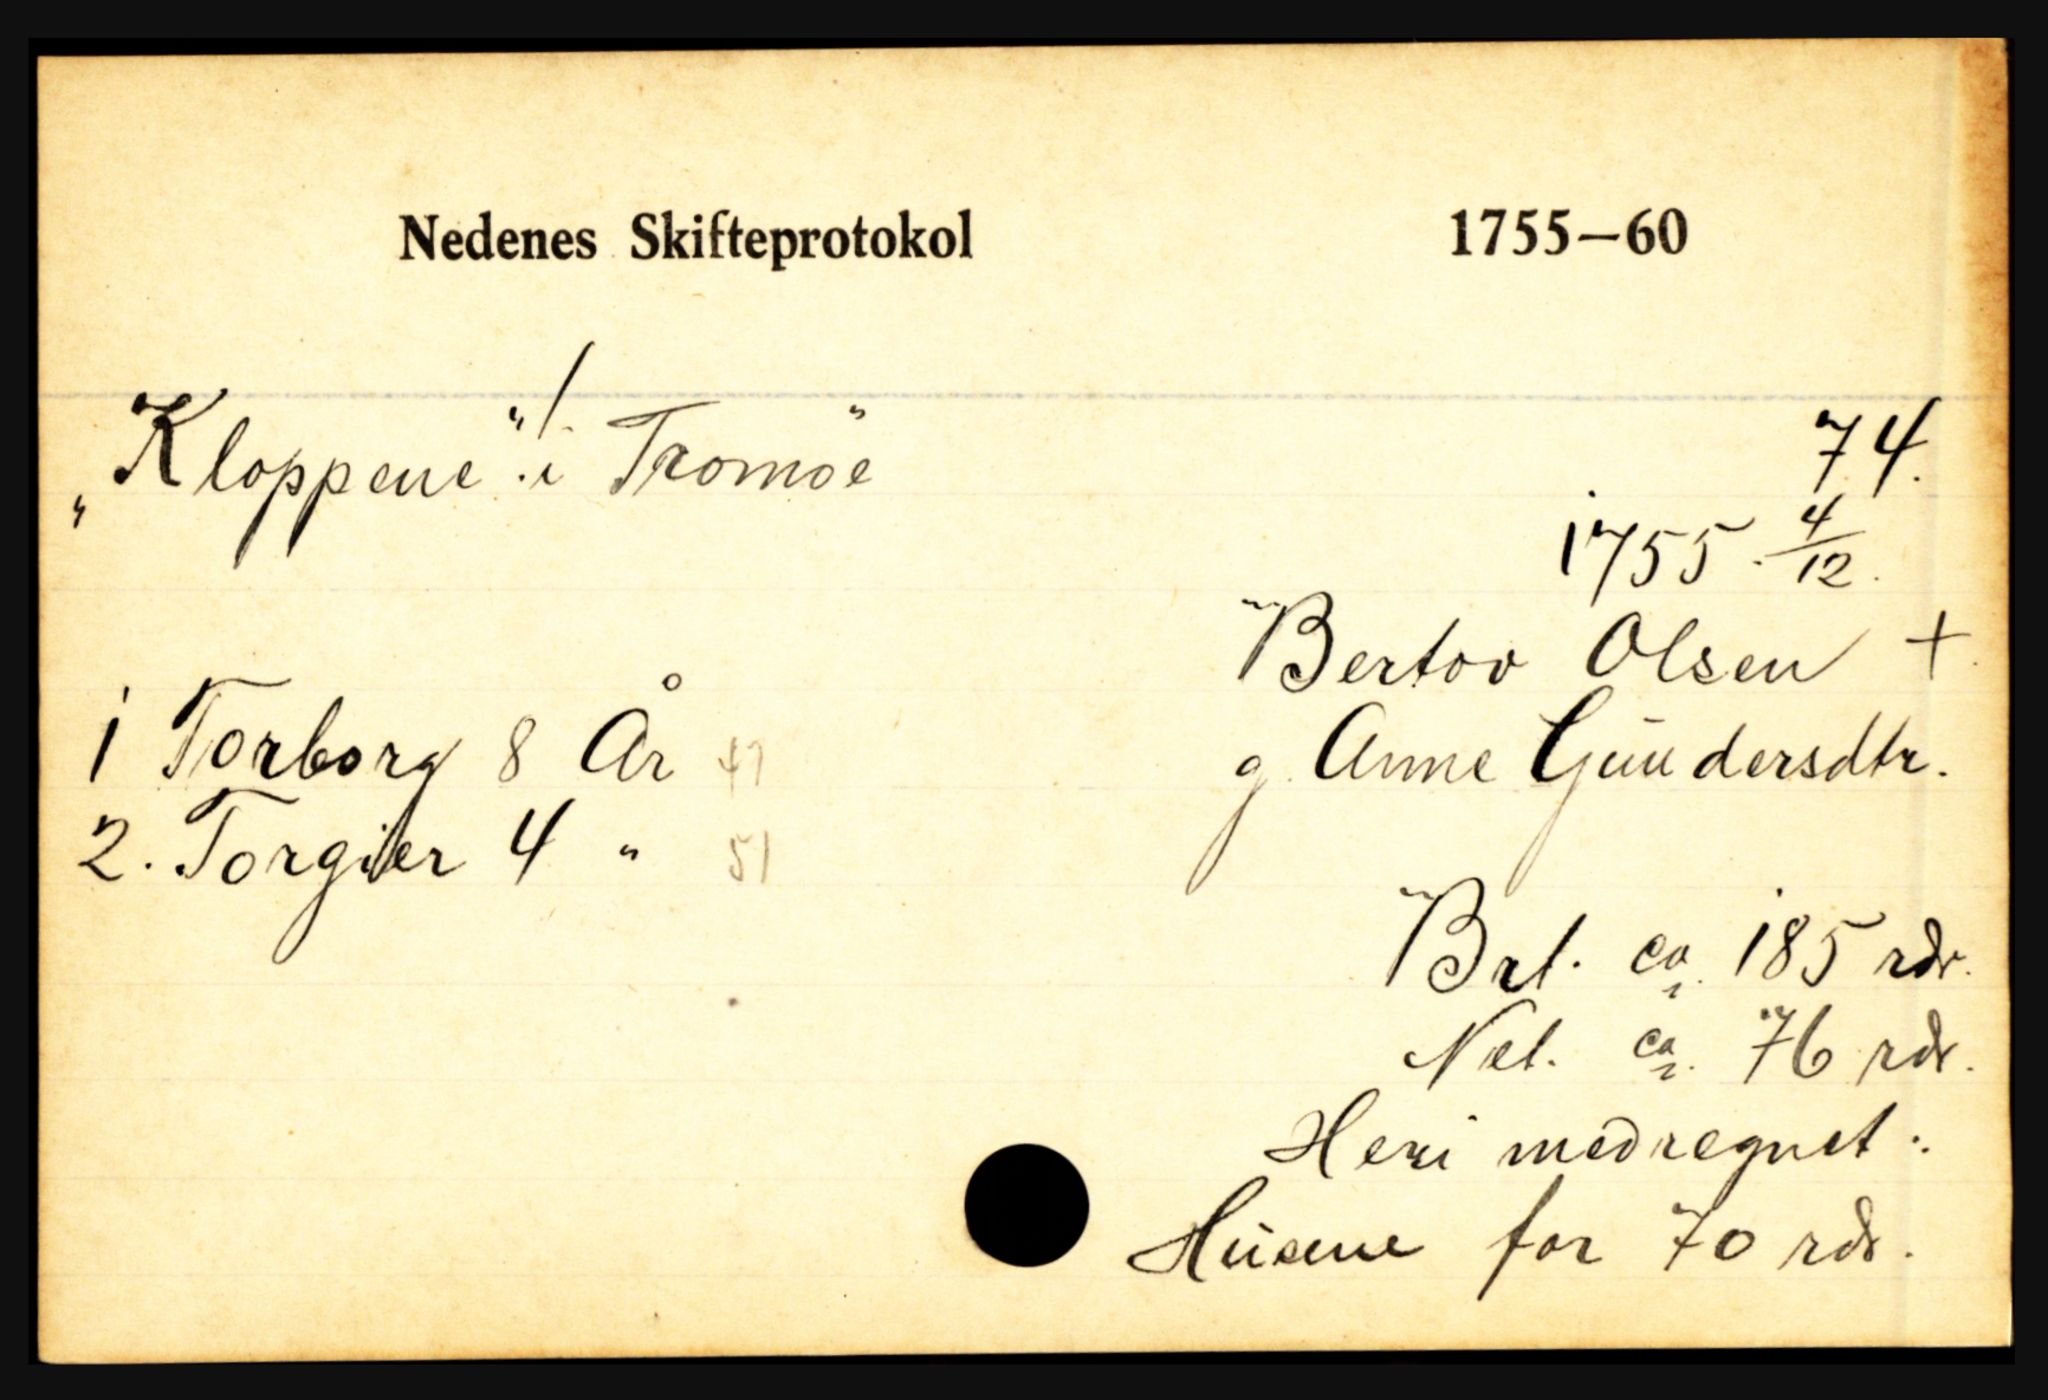 Nedenes Skifteprotokol 1755—60
„Kloppene" / i Tromöe
74.
1755. 4/12.
Bertov Olsen +
g. Anne Gündersdtr.
1 Torborg 8 År 47
2. Torgier 4 " 51
Brt. ca. 185 rdr.
Net. ca. 76 rdr.
Heri medregnet:
Hüsene for 70 rdr.